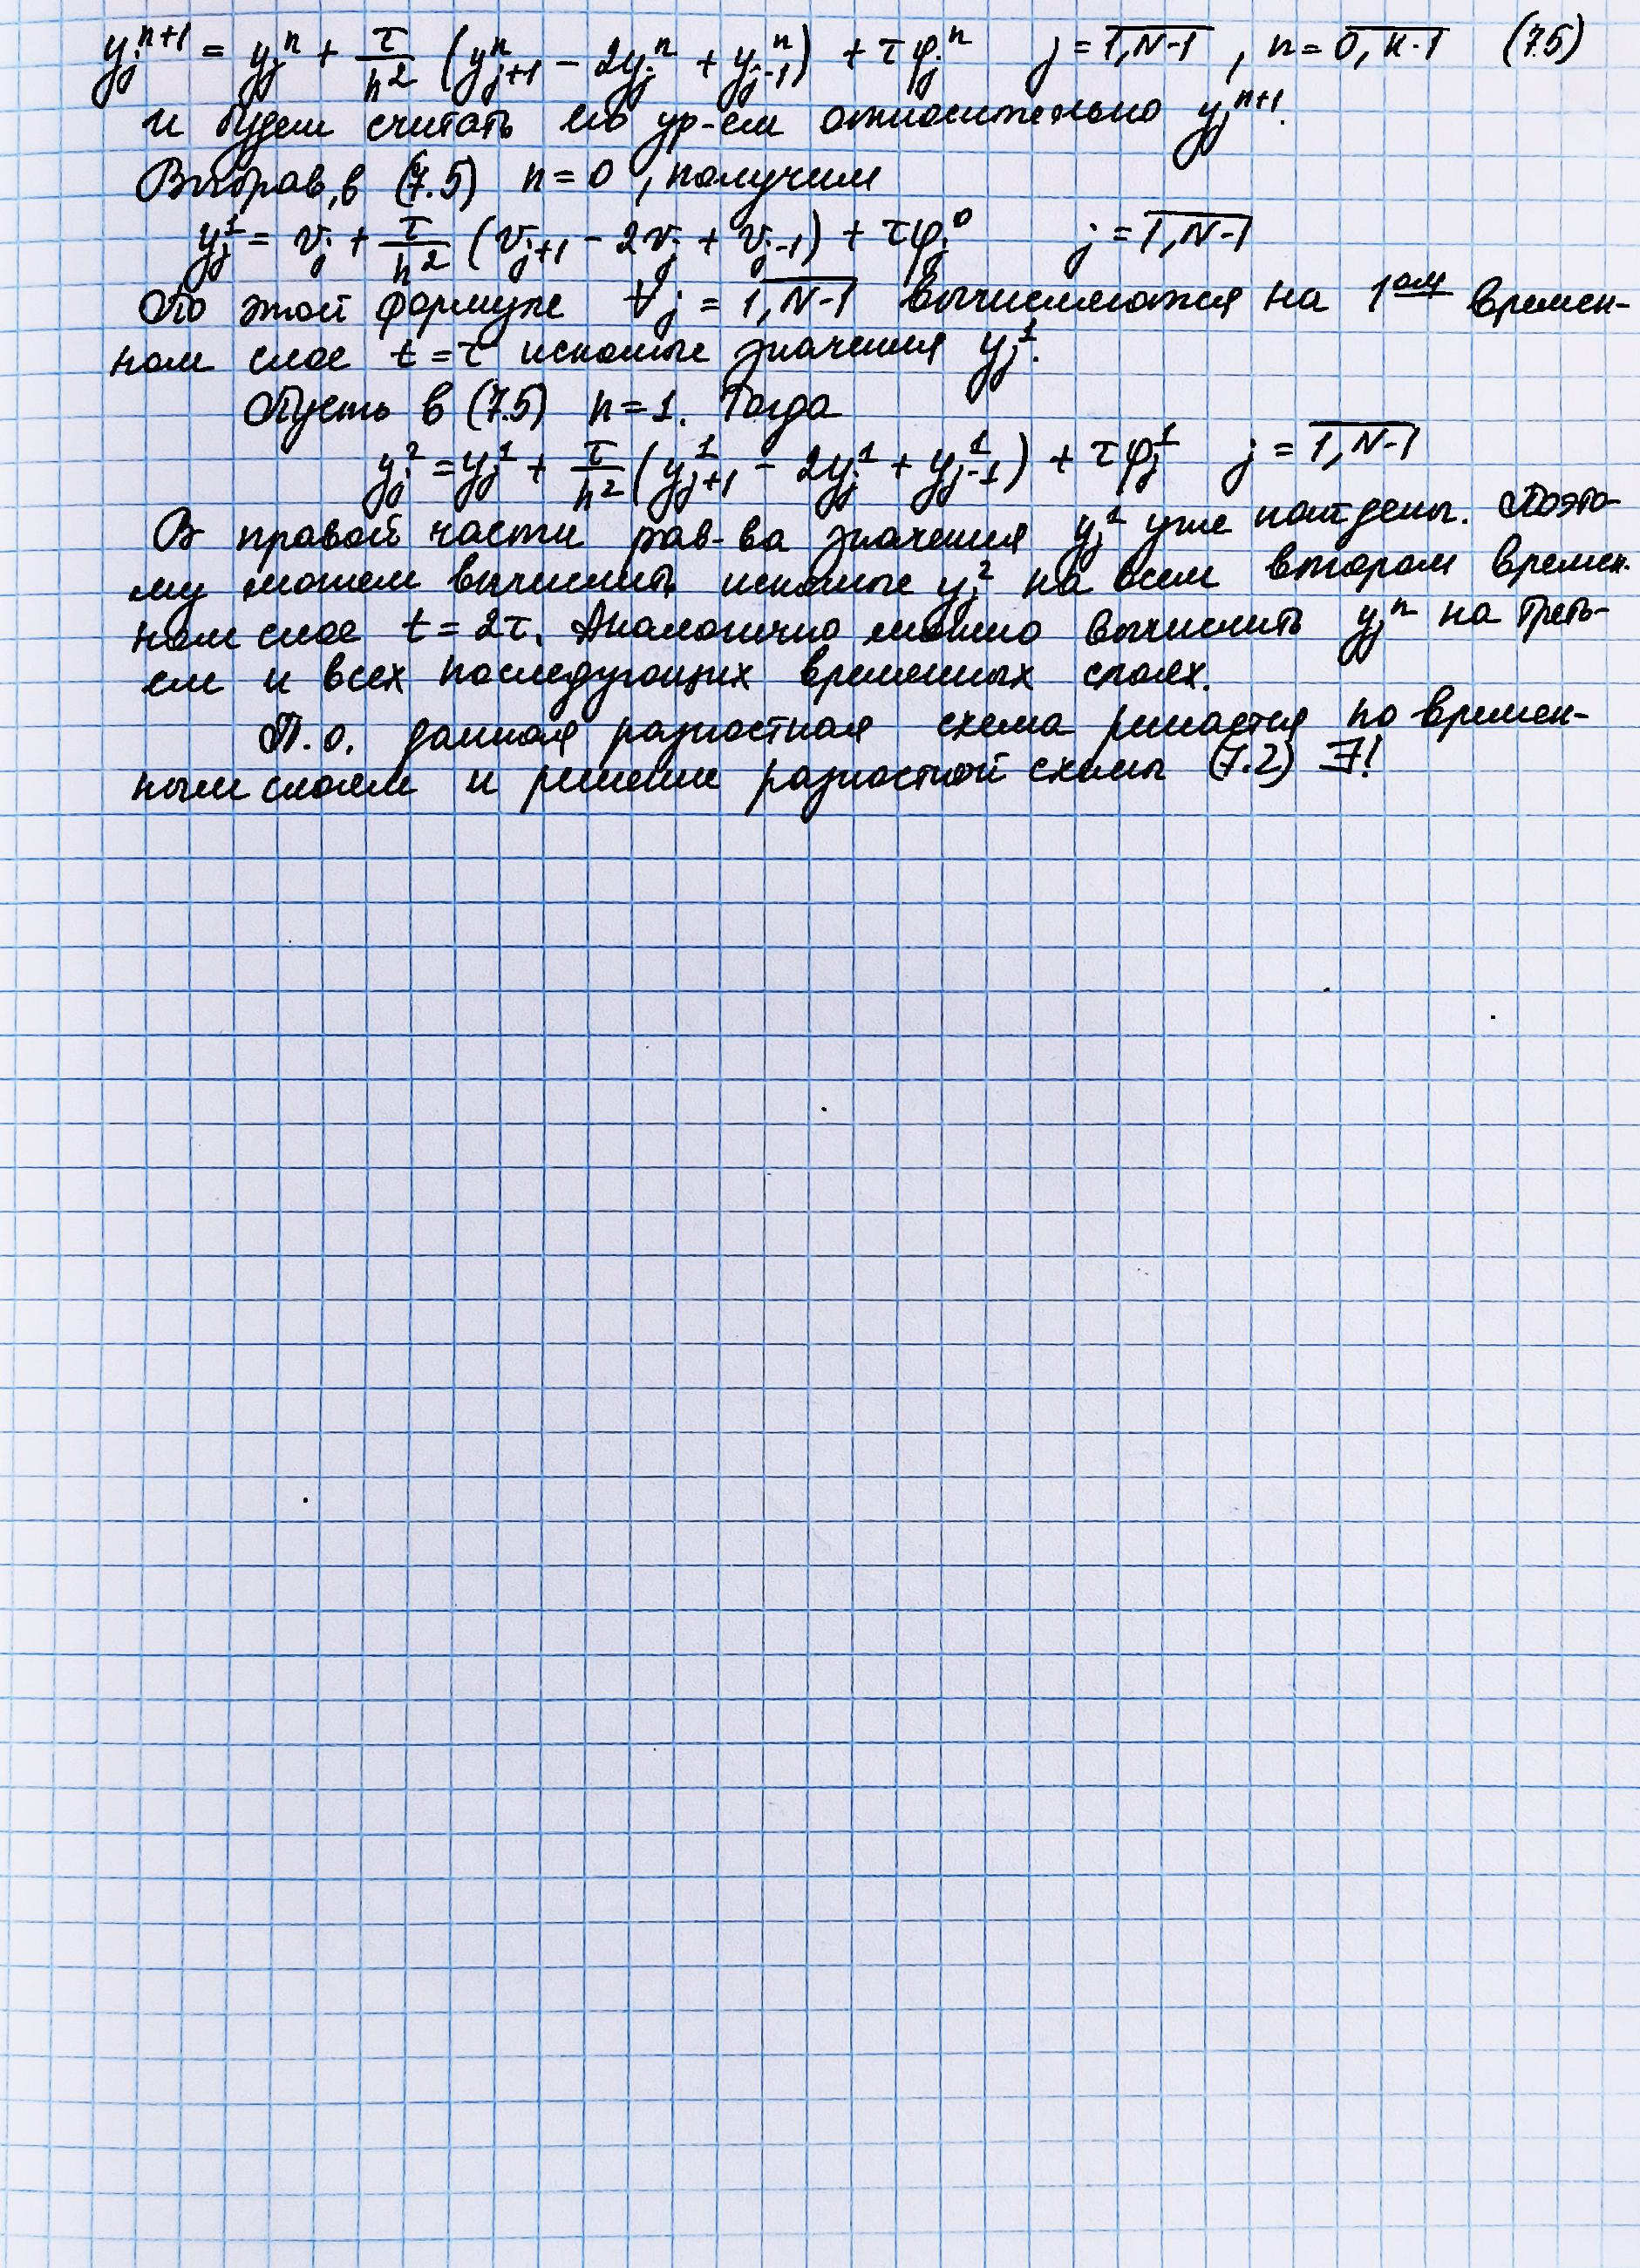 y_j^{n+1} = y_j^n + τ/h² (y_{j+1}^n - 2y_j^n + y_{j-1}^n) + τφ_j^n   j = \overline{1,N-1} , n = \overline{0,K-1}   (7.5)
и будем считать его ур-ем относительно y_j^{n+1}.
Выбрав, в (7.5) n=0, получим
y_j^1 = v_j + τ/h² (v_{j+1} - 2v_j + v_{j-1}) + τφ_j^0   j = \overline{1,N-1}
По этой формуле ∀j = \overline{1,N-1} вычисляются на 1^{ом} времен-
ном слое t=τ искомые значения y_j^1.
Пусть в (7.5) n=1. Тогда
y_j^2 = y_j^1 + τ/h² (y_{j+1}^1 - 2y_j^1 + y_{j-1}^1) + τφ_j^1   j = \overline{1,N-1}
В правой части рав-ва значения y_j^1 уже найдены. Поэто-
му можем вычислить искомые y_j^2 на всем втором времен-
ном слое t=2τ. Аналогично можно вычислить y_j^n на треть-
ем и всех последующих временных слоях.
Т.о. данная разностная схема решается по времен-
ным слоям и решение разностной схемы (7.2) ∃!